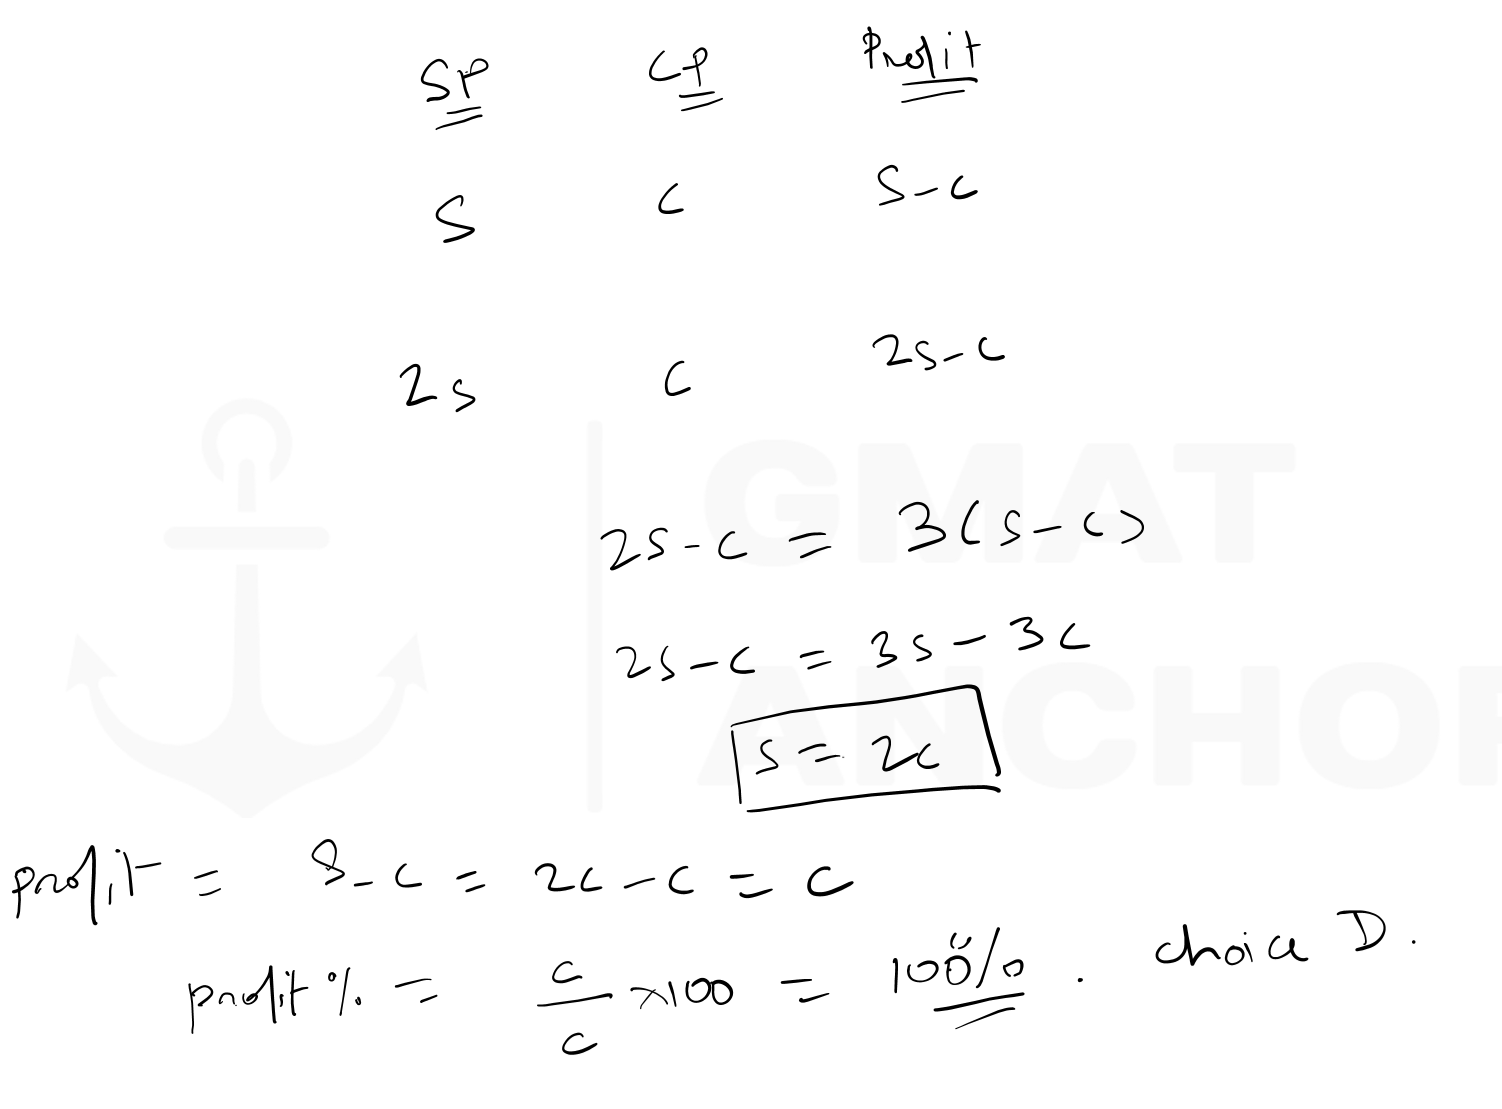 SP CP Profit
S C S-C
2S C 2S-C
2S-C = 3(S-C)
2S-C = 3S-3C
S = 2C
profit = S-C = 2C-C = C
profit % = C/C ×100 = 100%. choice D.
GMAT
ANCHOR